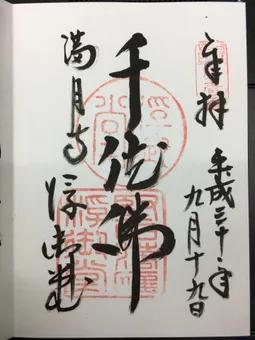 奉拝
平成三十年
九月十九日
千体佛
満月寺
浮御堂